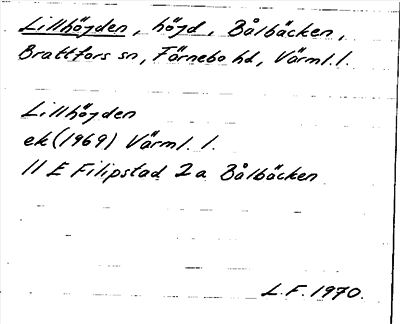 Lillhöjden, höjd, Bålbäcken,
Brattfors sn, Färnebo hd, Värml. l.
Lillhöjden
ek (1969) Värml. l.
11 E Filipstad 2 a Bålbäcken
L.F. 1970.